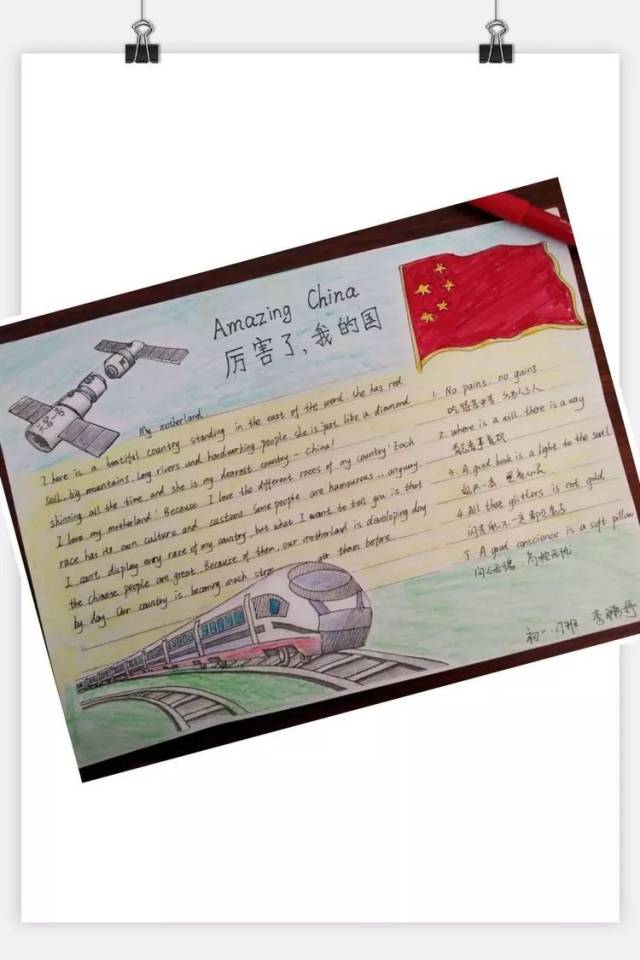 Amazing China
厉害了,我的国
My motherland.
There is a beatiful country standing in the east of the word. she has red
soil, big mountains, long rivers and hardworking people. she is just like a diamond
shinning all the time. and she is my dearest country - China!
I love my motherland! Because I love the different races of my country! Each
race has its own culture and customs. Some people are humourous... anyway,
I can't display every race of my country, but what I want to tell you is that
the chinese people are great. Because of them, our motherland is developing day
by day. Our country is becoming much than before
1. No pains, no gains
2. where is a will, there is a way
有志者事竟成
3. A good book is a light to the soul.
4. All that glitters is not gold
5. A good conscience is a soft pillow
初一.17班 李